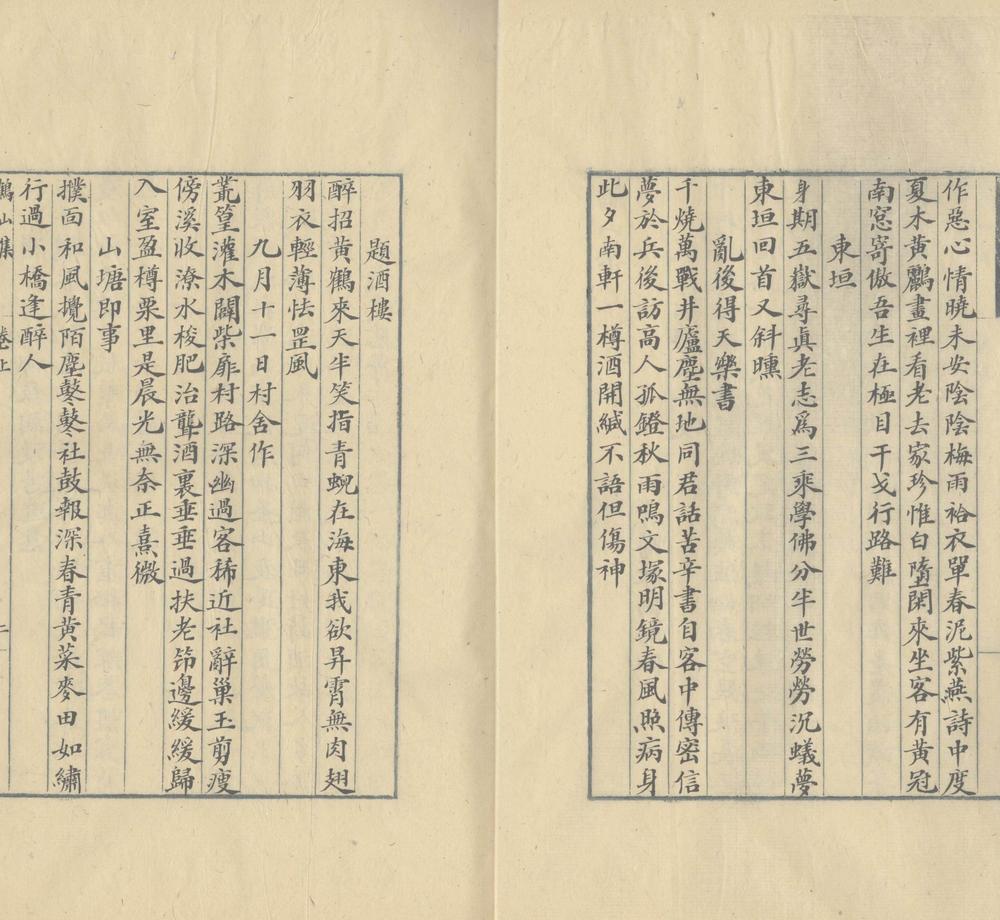 作惡心情曉未安陰陰梅雨袷衣單春泥紫燕詩中度
夏木黃鸝畫裡看老去家珍惟白墮閑來坐客有黃冠
南窓寄傲吾生在極目干戈行路難
東垣
身期五獄尋眞老志爲三乘學佛分半世勞勞沉蟻夢
東垣回首又斜曛
亂後得天樂書
千燒萬戰井廬塵無地同君話苦辛書自客中傳密信
夢於兵後訪高人孤鐙秋雨鳴文塚明鏡春風照病身
此夕南軒一樽酒開緘不語但傷神
題酒樓
醉招黃鶴來天半笑指青蜺在海東我欲昇霄無肉翅
羽衣輕薄怯罡風
九月十一日村舍作
叢篁灌木闢柴扉村路深幽過客稀近社辭巢玉剪瘦
傍溪收潦水梭肥治聾酒裏垂垂過扶老笻邊緩緩歸
入室盈樽栗里是晨光無奈正熹微
山塘即事
撲面和風攪陌塵鼕鼕社鼓報深春青黃菜麥田如繡
行過小橋逢醉人
鶴山集 卷上